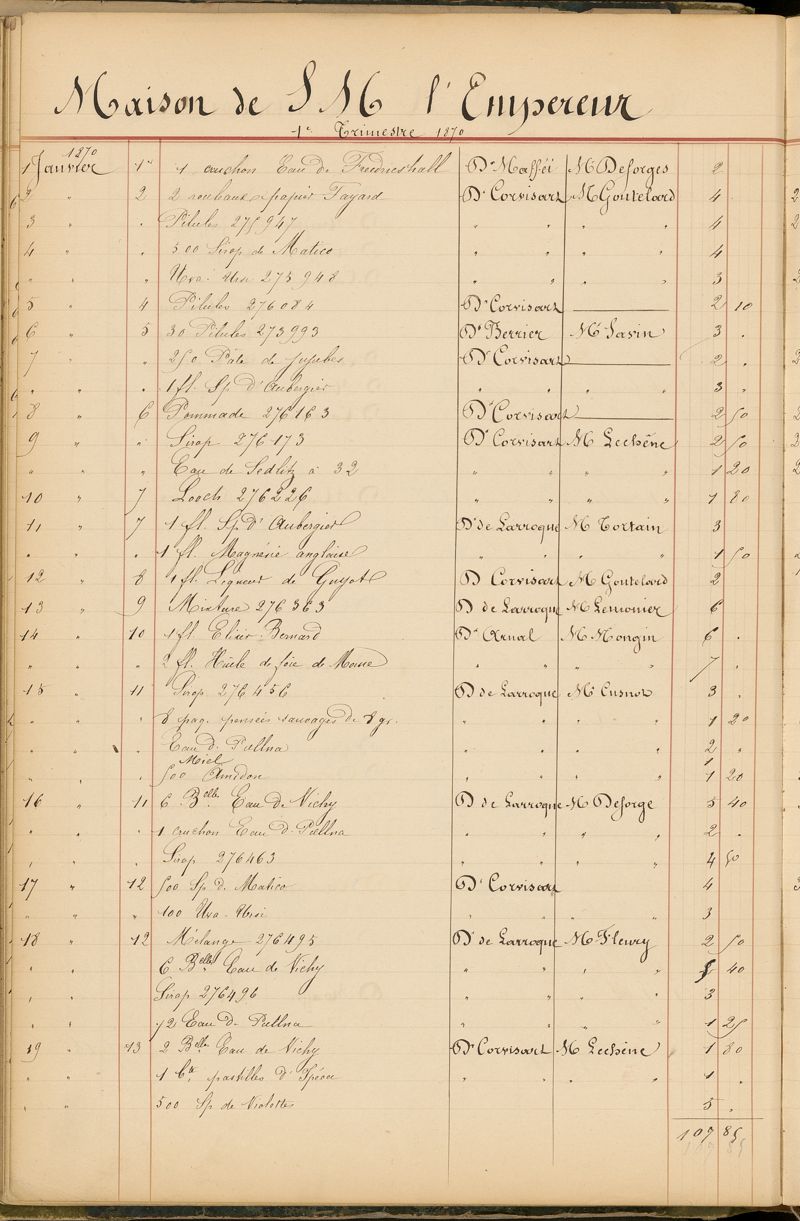 Maison de S M l'Empereur
1er Trimestre 1870
1870
1 Janvier 1er 1 cruchon Eau de Friedrichshall Dr Mafféi Mr Deforges 2
2 " 2 2 rouleaux papier Fayard Dr Corvisart Mr Goutelard 4
3 " " Pilules 275947 " " " " 4
4 " " 500 Sirop de Matico " " " " 4
" " " Uva Ursi 275948 " " " " 3
5 " 4 Pilules 276084 Dr Corvisart 2 10
6 " 5 30 Pilules 273993 Dr Berrier Mr Savin 3 "
7 " " 250 Pâte de Jujubes Dr Corvisart 2 "
" " " 1 fl. Sp d'Aubergier " " " " 3 "
8 " 6 Pommade 276163 Dr Corvisart 2 50
9 " " Sirop 276173 Dr Corvisart M Lechêne 2 50
" " " Eau de Sedlitz à 32 " " " " 1 20
10 " 7 Looch 276226 " " " " 1 80
11 " 7 1 fl. Sp d'Aubergier Dr de Larroque M Tortain 3
" " " 1 fl. Magnésie anglaise " " " " 1 50
12 " 8 1 fl. Liqueur de Guyot D Corvisart M Goutelard 2
13 " 9 Mixture 276363 D de Larroque M Lemonier 6
14 " 10 1 fl. Elixir Bernard Dr Arnal M Mongin 6 "
" " " 2 fl. Huile de foie de Morue " " " " 7 "
15 " 11 Sirop 276456 D de Larroque Mr Cusnot 3 "
" " " 8 paq. pensées sauvages de 8 gr. " " " " 1 20
" " " Eau d. Pullna " " " " 2 "
Miel 1
" " " 500 Amidon " " " " 1 20
16 " 11 6 Blles Eau de Vichy D de Larroque M Deforge 5 40
" " " 1 cruchon Eau d. Pullna " " " " 2 "
" " Sirop 276463 " " 4 50
17 " 12 500 Sp d. Matico Dr Corvisart 4
" " " 100 Uva-Ursi " " " 3
18 " 12 Mélange 276495 Dr de Larroque M Fleury 2 50
" " 6 Blles Eau de Vichy " " " " 5 40
" " Sirop 276496 " " " " 3
" " 1/2 Eau d. Pullna " " " " 1 25
19 " 13 2 Blles Eau de Vichy Dr Corvisart M Lechêne 1 80
" " 1 Bte pastilles d'Ipéca " " " " 1 "
" " 500 Sp de Violettes 5 "
107 85